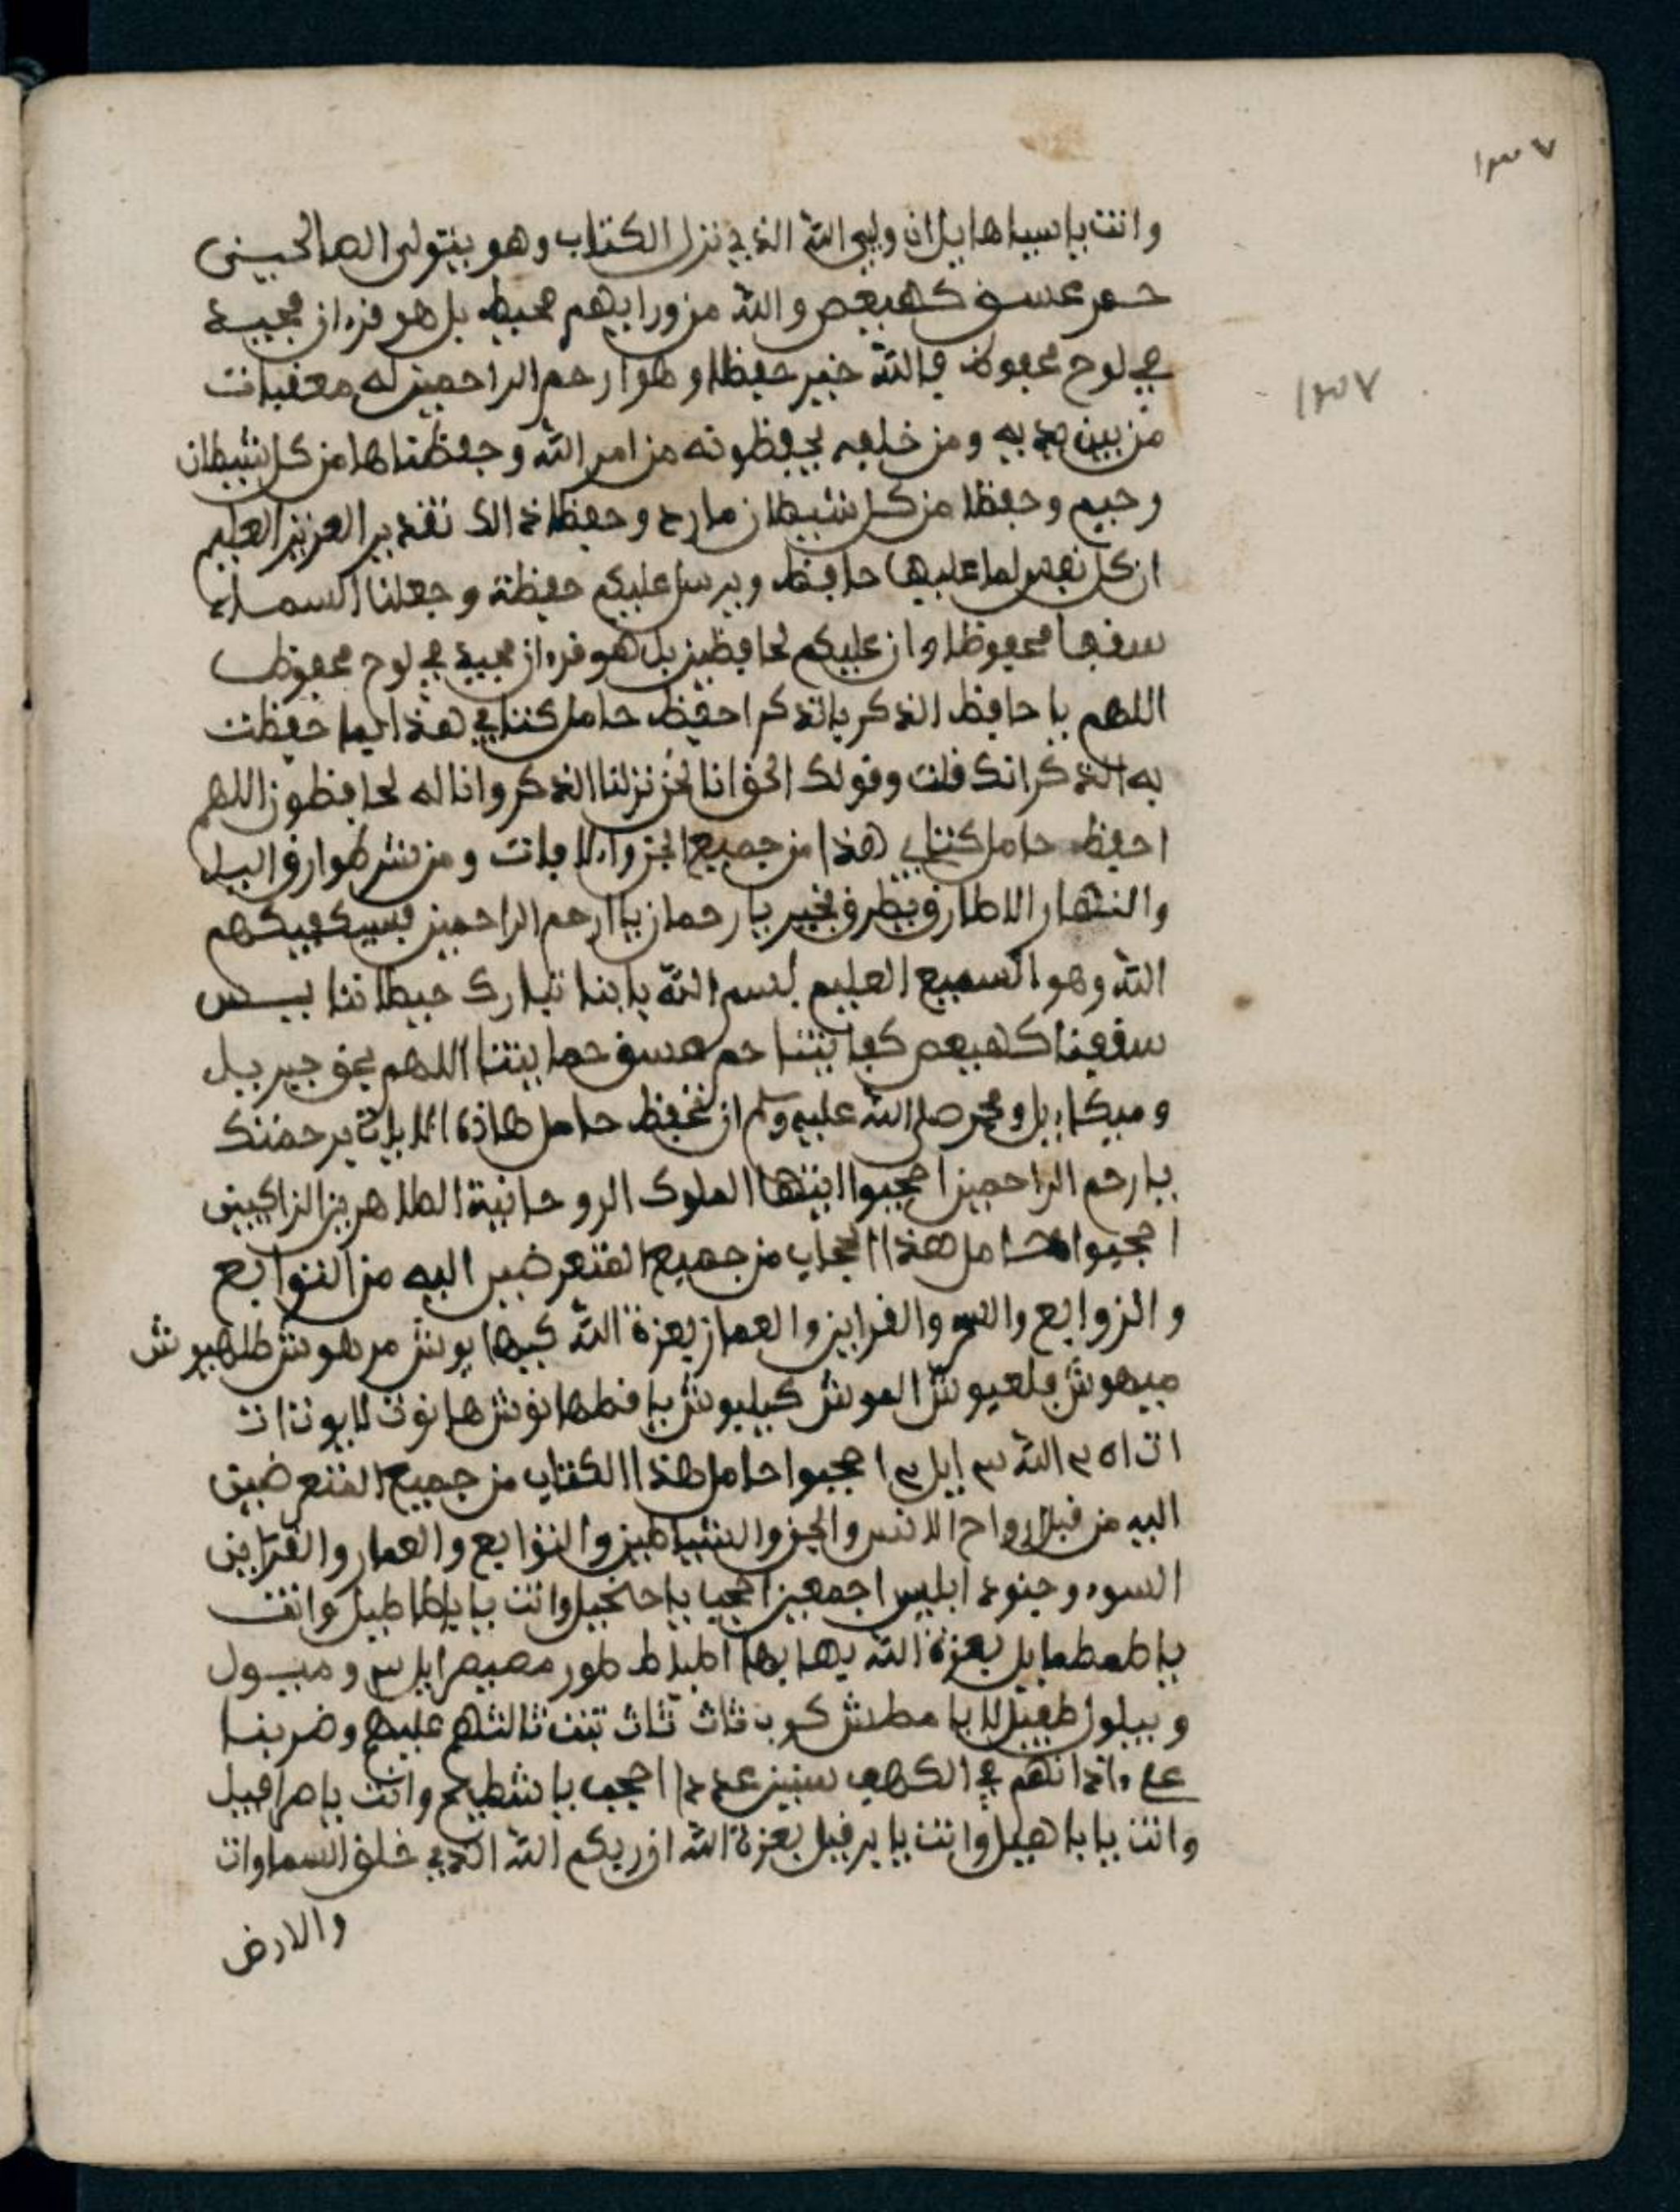 ١٣٧
١٣٧
وانت يا سياهايل ان وليي الله الذي نزل الكتاب وهو يتولى الصالحين
حم عسق كهيعص والله من ورايهم محيط بل هو قرءان مجيد
في لوح محفوظ فالله خير حفظا وهو ارحم الراحمين له معقبات
من بين يديه ومن خلفه يحفظونه من امر الله وحفظناها من كل شيطان
رجيم وحفظا من كل شيطان مارد وحفظا ذالك تقدير العزيز العليم
ان كل نفس لما عليها حافظ ويرسل عليكم حفظة وجعلنا السماء
سقفا محفوظا وان عليكم لحافظين بل هو قرءان مجيد في لوح محفوظ
اللهم يا حافظ الذكر بالذكر احفظ حامل كتابي هذا بما حفظت
به الذكر انك قلت وقولك الحق انا نحن نزلنا الذكر وانا له لحافظون اللهم
احفظ حامل كتابي هذا من جميع الجن والافات ومن شر طوارق اليل
والنهار الا طارق يطرق بخير يا رحمان يا ارحم الراحمين فسيكفيكهم
الله وهو السميع العليم بسم الله بابنا تبارك حيطاننا يس
سقفنا كهيعص كفايتنا حم عسق حمايتنا اللهم بحق جبريل
وميكاءيل ومحمد صلى الله عليه وسلم ان تحفظ حامل هاذه الايات برحمتك
يا رحم الراحمين احجبوا ايتها الملوك الروحانية الطاهرين الزاكيين
احجبوا حامل هذا الحجاب من جميع المتعرضين اليه من التوابع
والزوابع والقراين والعمار بعزة الله كيهايوش مرهوش طلهيوش
ميهوش فلعيوش العوش كيليوش يا قطهانوش
الله ايل احجبوا حامل هذا الكتاب من جميع المتعرضين
اليه من قبل ارواح الانس والجن والشياطين والتوابع والعمار والقراين
السوء وجنود ابليس اجمعين احجب يا حنجيل وانت يا ياطاطيل وانت
يا طمطمايل بعزة الله يهايها اطباط طور ايل وميسول
وبيلول كوب ثاث ثاث تبت تالتهم عليهم وضربنا
على ءاذانهم في الكهف سنين عددا احجب يا شطيح وانت يا صرافيل
وانت يا ياهيل وانت يا يرفيل بعزة الله ان ربكم الله الذي خلق السماوات
والارض